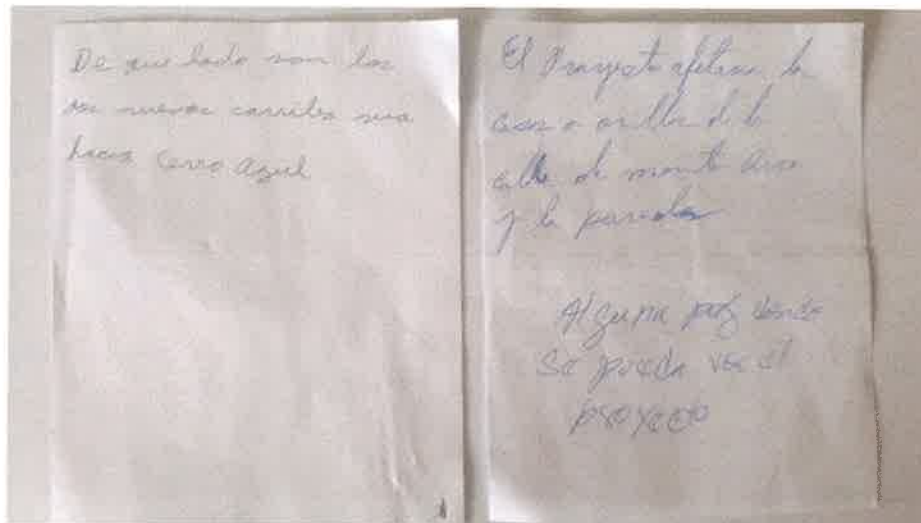 De que lado son los
nuevos carriles
hacia Cerro Azul
El Proyecto afectara la
casa a orillas de la
calle de monte
y la parada
Alguna pag donde
se pueda ver el
proyecto